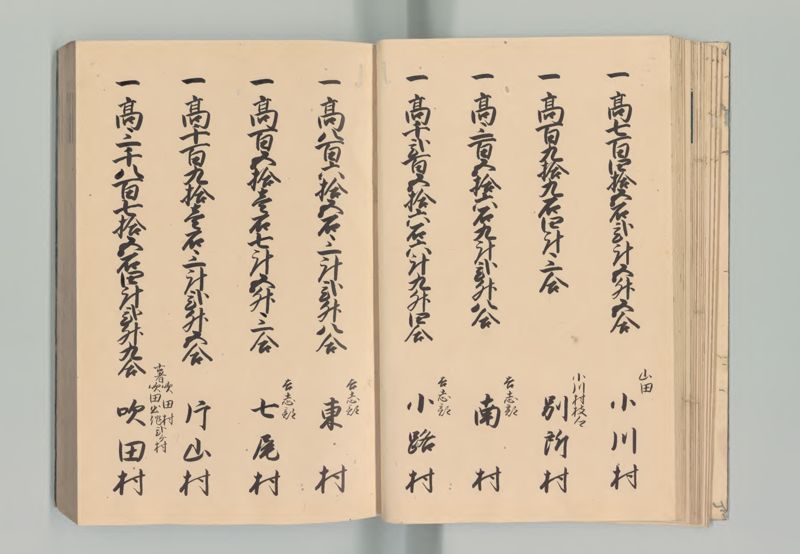 一 髙七百四拾五石弐斗五升五合 山田 小川村
一 髙百九拾九石四斗三合 小川村枝 別所村
一 髙三百五拾六石九斗弐升八合 吉志部 南村
一 髙千弐百五拾六石六斗九升四合 吉志部 小路村
一 髙八百六拾五石三斗弐升八合 吉志部 東村
一 髙百五拾壱石七斗五升三合 吉志部 七尾村
一 髙千百九拾壱石三斗弐升五合 片山村
一 髙三千八百七拾五石四斗弐升九合 吹田村 吹田 吹田村